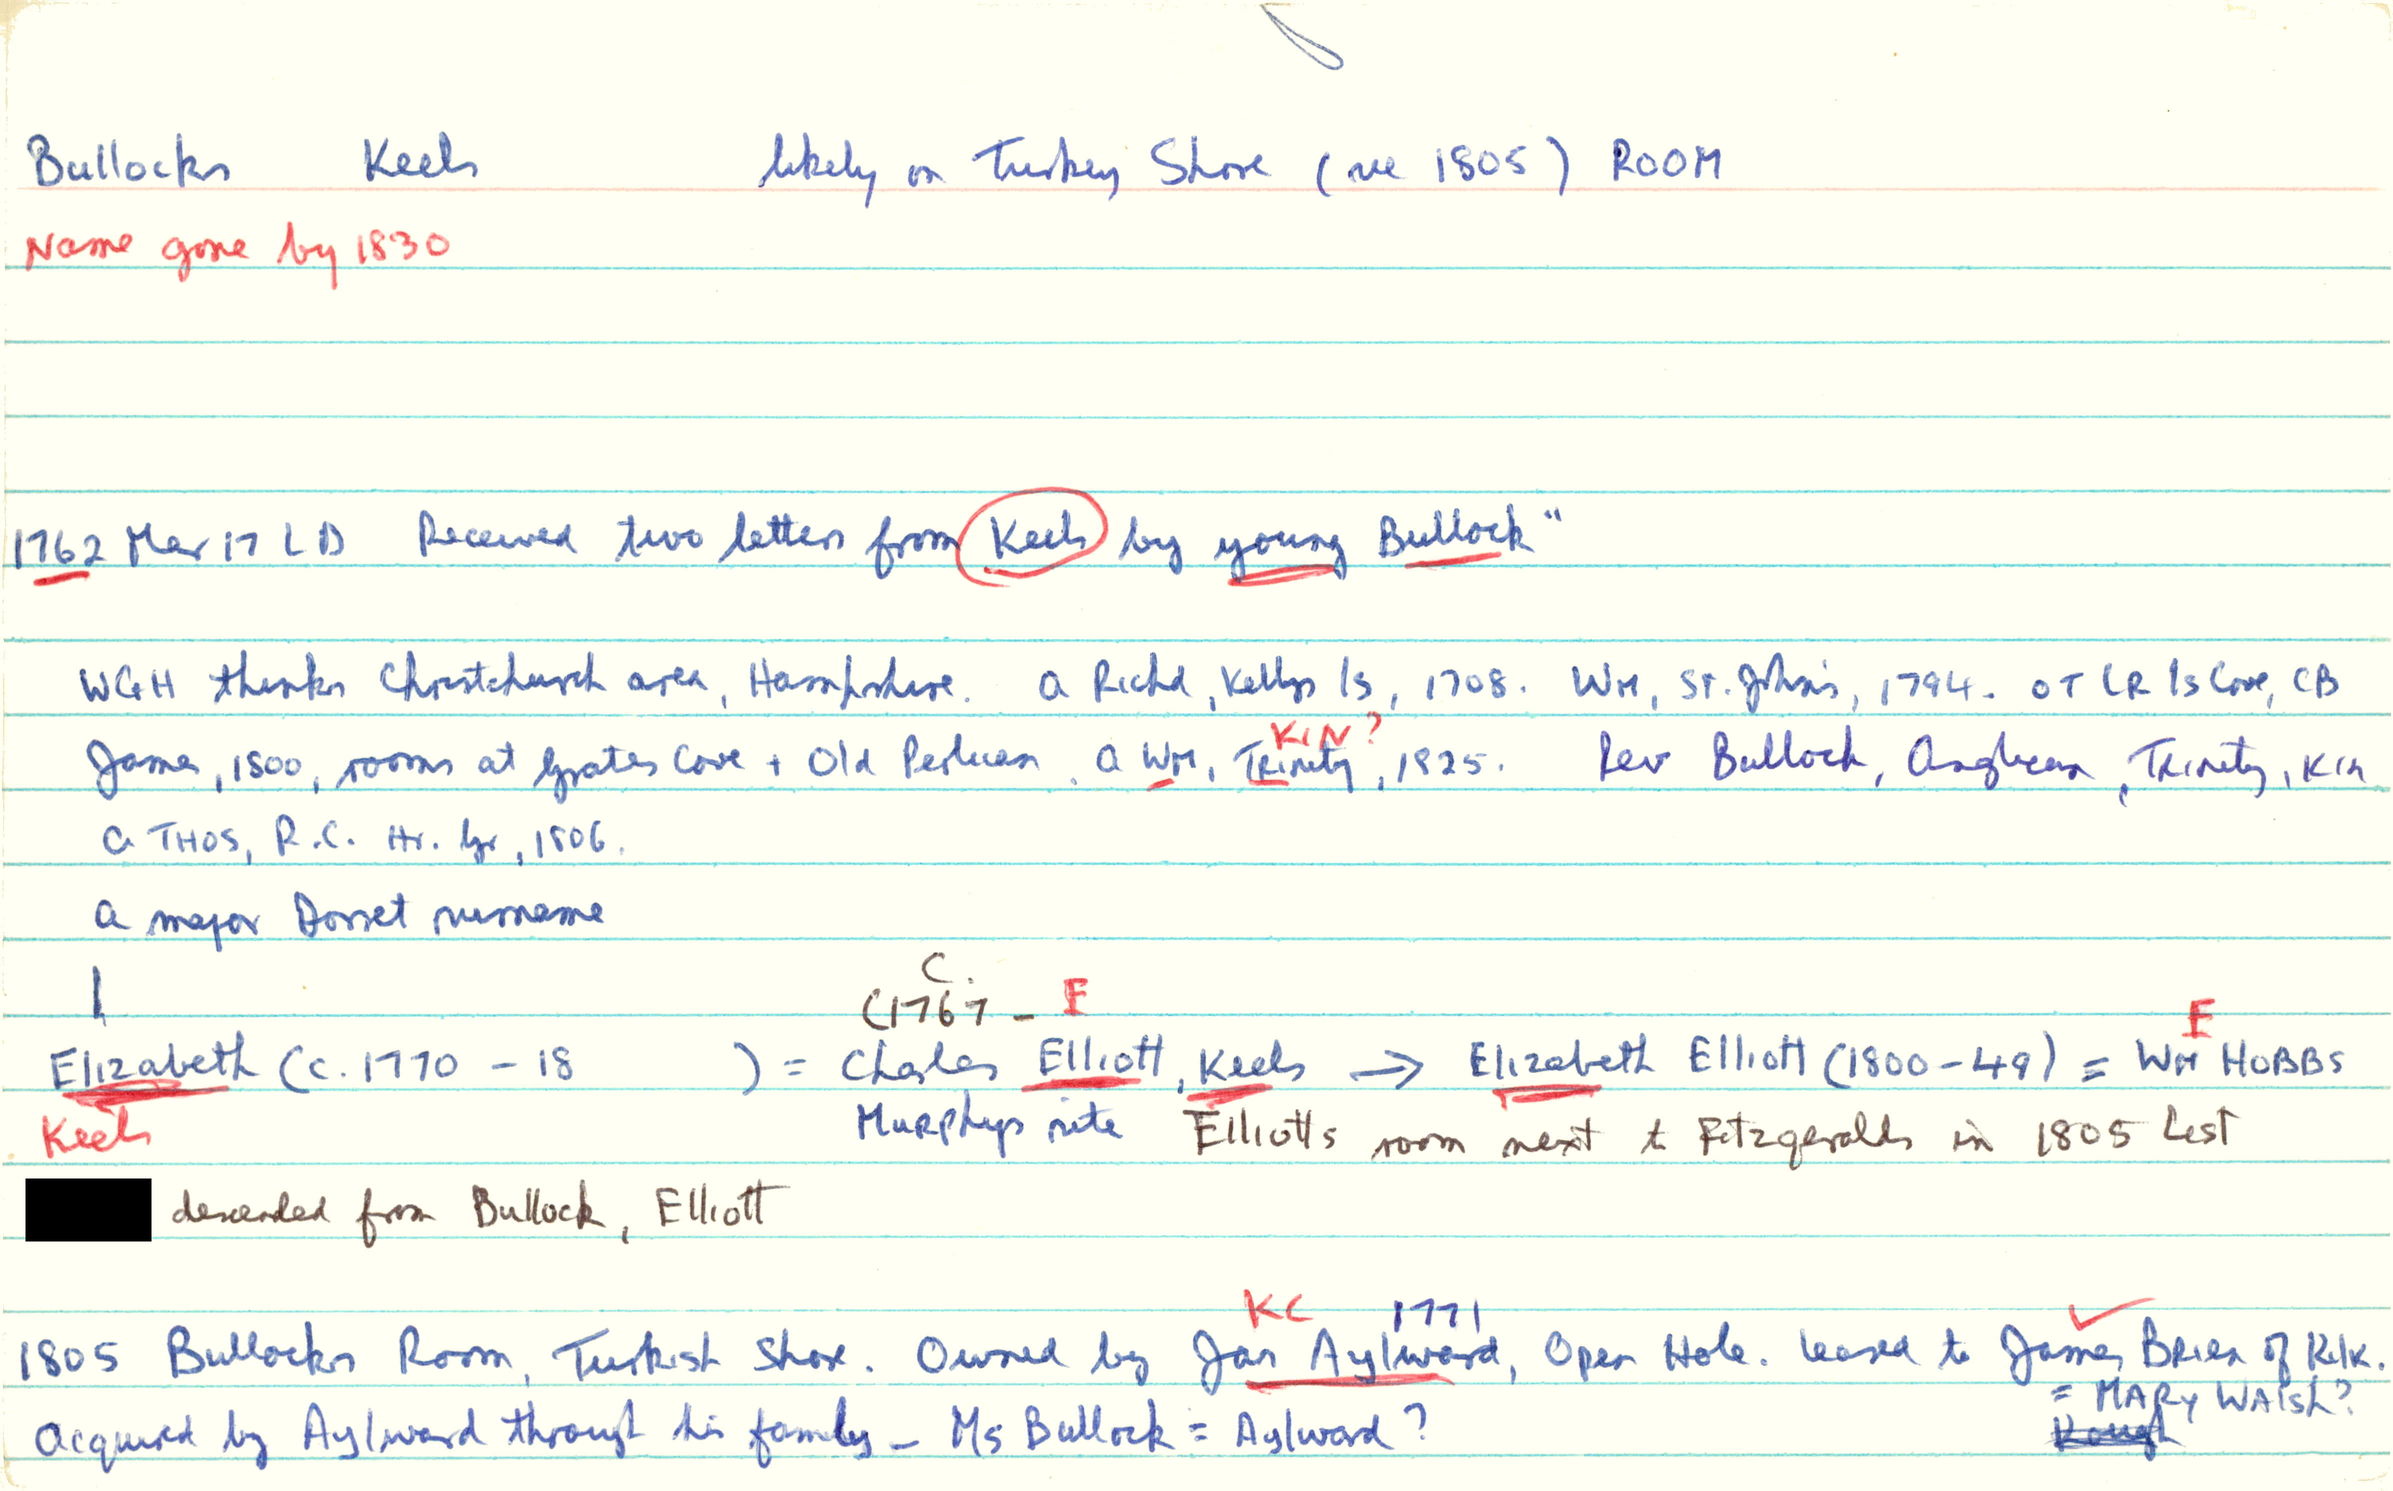 Bullocks Keels likely on Turkey Shore (see 1805) ROOM
Name gone by 1830
1762 Mar 17 LD Received two letters from Keels by young Bullock"
WGH thinks Christchurch area, Hampshire. a Richd, Kellys Is, 1708. Wm, St. John's, 1794. OT LR Is Cove, CB
KIN?
James, 1800, rooms at Grates Cove + Old Perlican. a Wm, Trinity, 1825. Rev Bullock, Anglican, Trinity, KIN
a THOS, R.C. Hr. Gr, 1806.
a major Dorset surname
C.
(1767 - E
E
Elizabeth (c. 1770 - 18 ) = Charles Elliott, Keels → Elizabeth Elliott (1800-49) = WM HOBBS
Keels Murphys site Elliotts room next to Fitzgeralds in 1805 List
descended from Bullock, Elliott
KC 1771
1805 Bullocks Room, Turkish Shore. Owned by Jas Aylward, Open Hole. leased to James Brien of Kilk.
= MARY WALSH?
acquired by Aylward through his family - Ms Bullock = Aylward? Kough